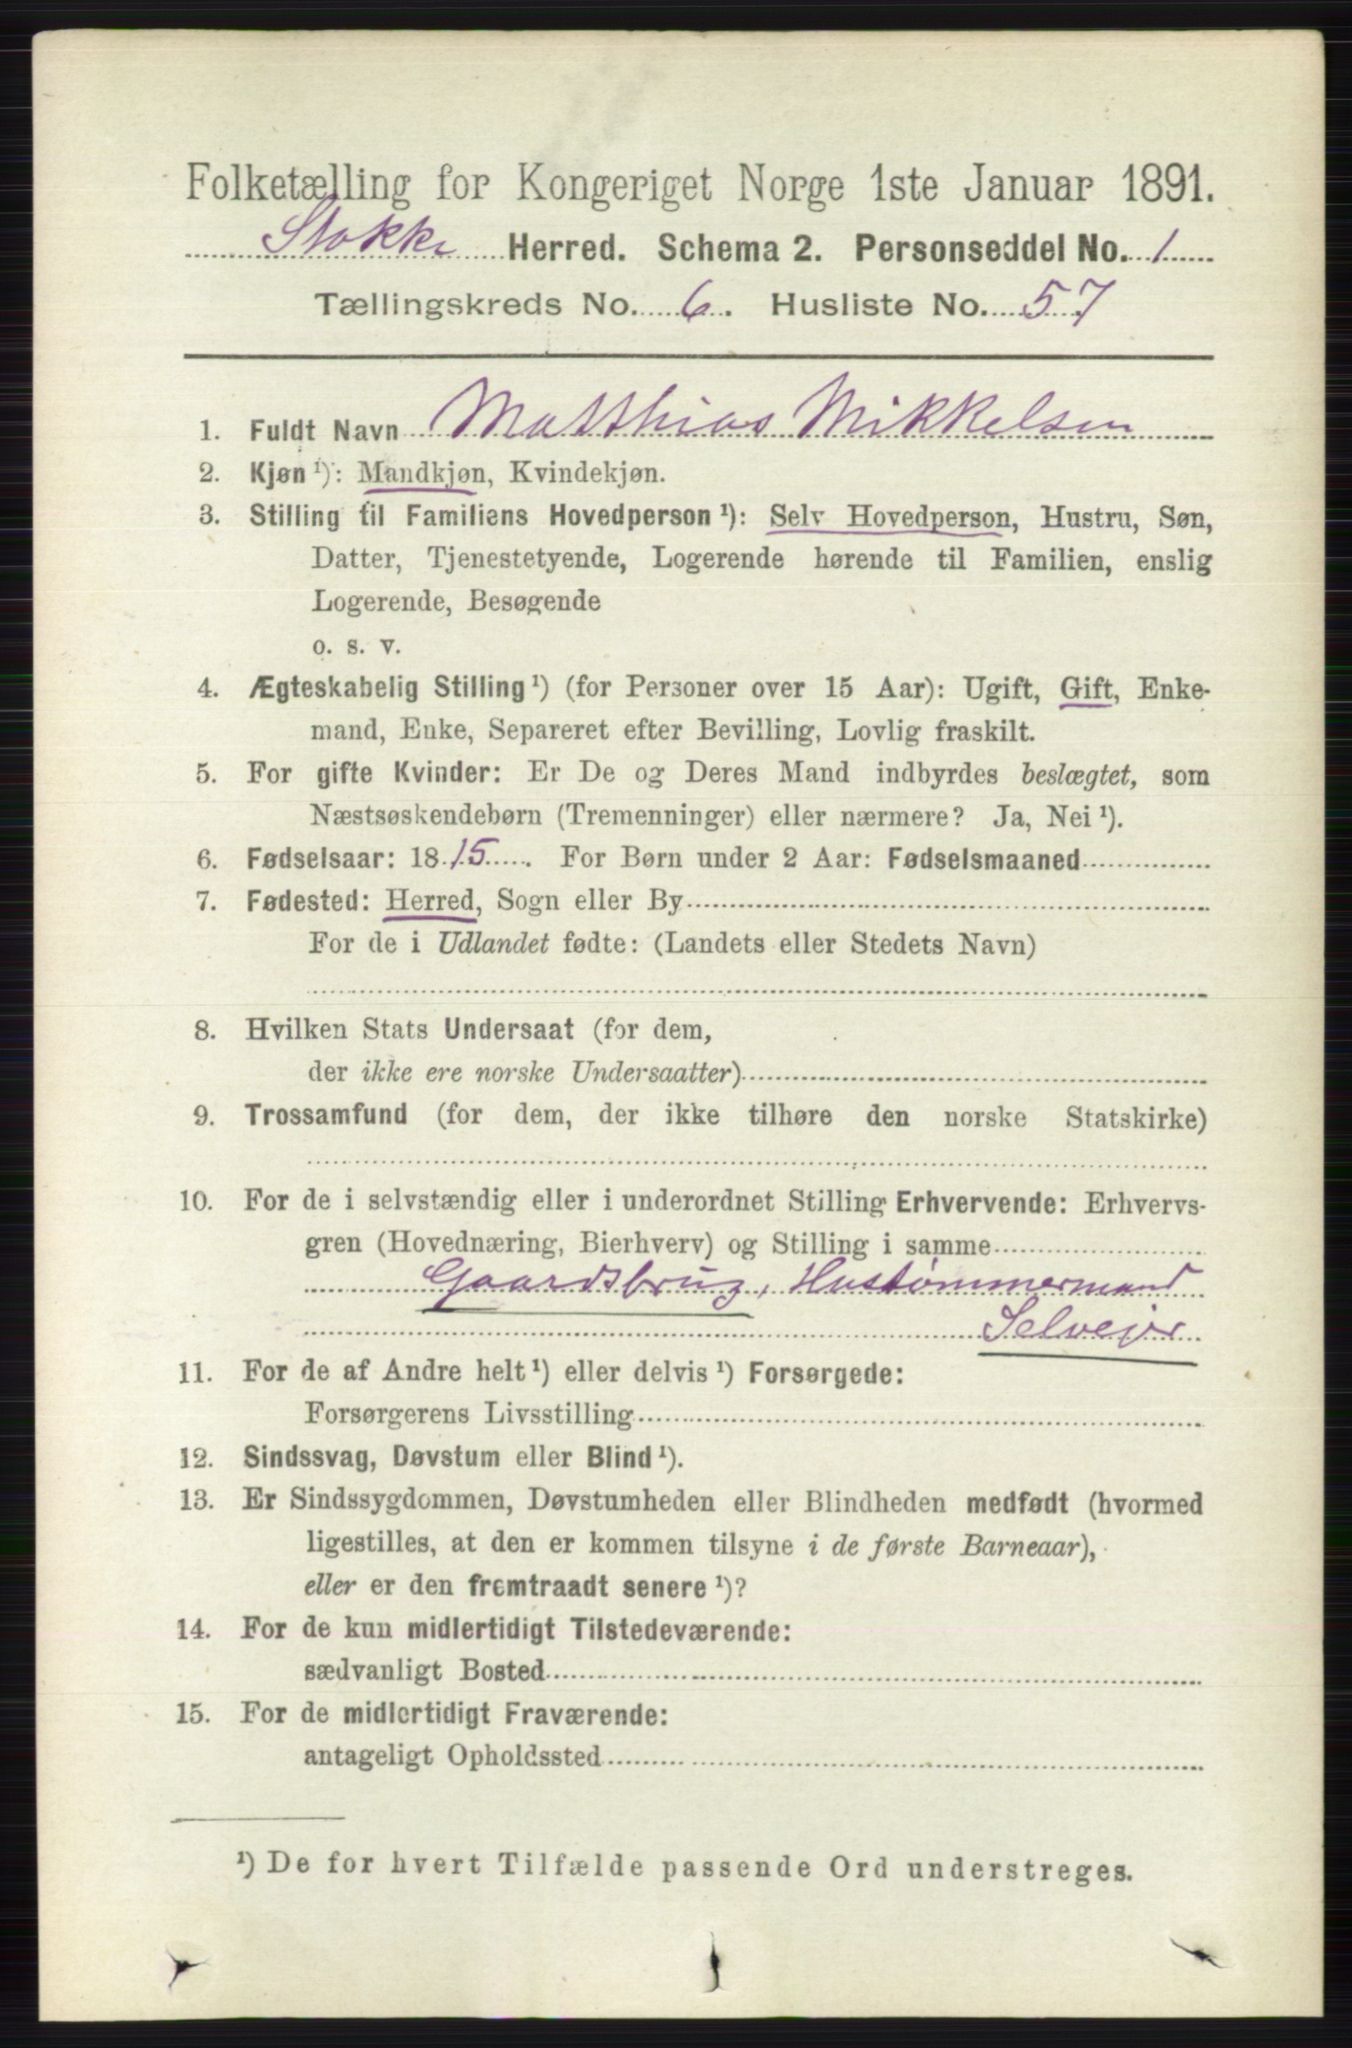 Folketælling for Kongeriget Norge 1ste Januar 1891.
Stokke Herred. Schema 2. Personseddel No. 1
Tællingskreds No. 6. Husliste No. 57
1. Fuldt Navn Matthias Mikkelsen
2. Kjøn ¹): Mandkjøn, Kvindekjøn.
3. Stilling til Familiens Hovedperson ¹): Selv Hovedperson, Hustru, Søn,
Datter, Tjenestetyende, Logerende hørende til Familien, enslig
Logerende, Besøgende
o. s. v.
4. Ægteskabelig Stilling ¹) (for Personer over 15 Aar): Ugift, Gift, Enke-
mand, Enke, Separeret efter Bevilling, Lovlig fraskilt.
5. For gifte Kvinder: Er De og Deres Mand indbyrdes beslægtet, som
Næstsøskendebørn (Tremenninger) eller nærmere? Ja, Nei ¹).
6. Fødselsaar: 1815. For Børn under 2 Aar: Fødselsmaaned
7. Fødested: Herred, Sogn eller By
For de i Udlandet fødte: (Landets eller Stedets Navn)
8. Hvilken Stats Undersaat (for dem,
der ikke ere norske Undersaatter)
9. Trossamfund (for dem, der ikke tilhøre den norske Statskirke)
10. For de i selvstændig eller i underordnet Stilling Erhvervende: Erhvervs-
gren (Hovednæring, Bierhverv) og Stilling i samme
Gaardsbrug, Hustømmermand
Selveier
11. For de af Andre helt ¹) eller delvis ¹) Forsørgede:
Forsørgerens Livsstilling
12. Sindssvag, Døvstum eller Blind ¹).
13. Er Sindssygdommen, Døvstumheden eller Blindheden medfødt (hvormed
ligestilles, at den er kommen tilsyne i de første Barneaar),
eller er den fremtraadt senere ¹)?
14. For de kun midlertidigt Tilstedeværende:
sædvanligt Bosted
15. For de midlertidigt Fraværende:
antageligt Opholdssted
¹) De for hvert Tilfælde passende Ord understreges.